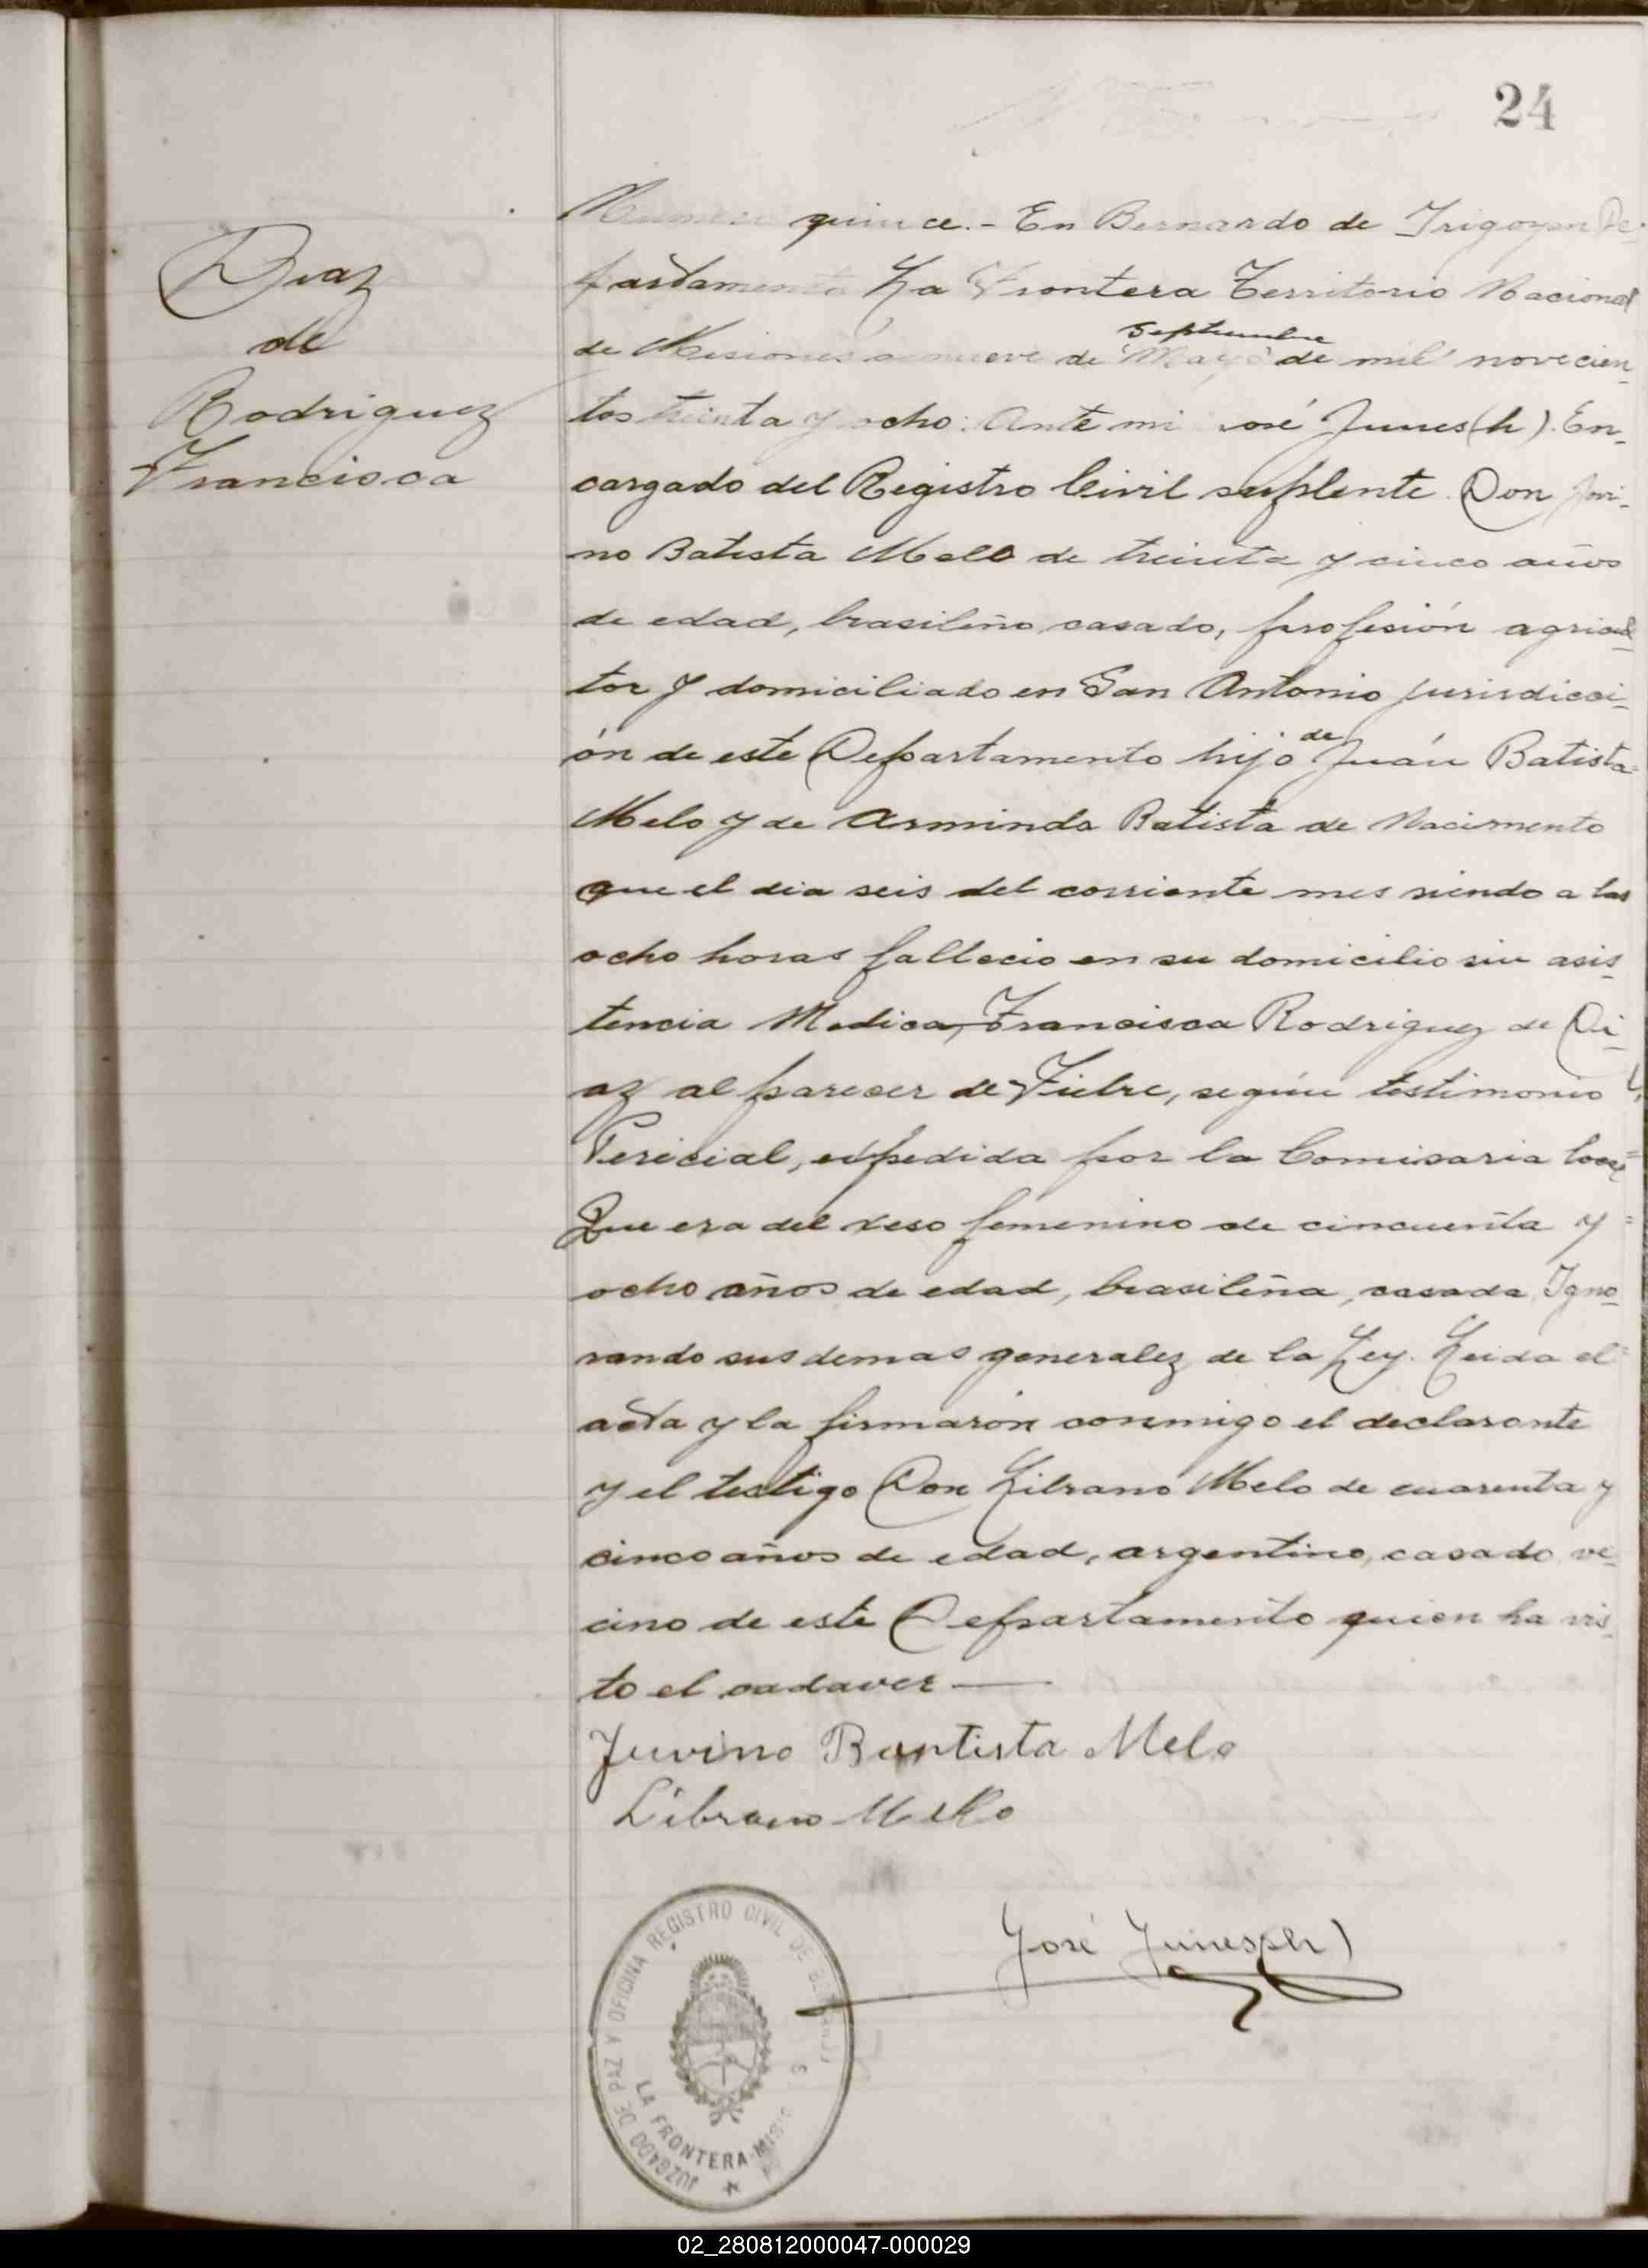 24
Diaz
de
Rodriguez
Francisca
Numero quince.- En Bernardo de Irigoyen De-
partamento La Frontera Territorio Nacional
de Misiones a nueve de "Mayo" Septiembre de mil novecien-
tos treinta y ocho: Ante mi José Junes (h). En-
cargado del Registro Civil suplente. Don Jovi-
no Batista Mello de treinta y cinco años
de edad, brasileño, casado, profesión agricul-
tor y domiciliado en San Antonio jurisdicci-
ón de este Departamento hijo de Juán Batista
Melo y de Arminda Batista de Nacimento
que el dia seis del corriente mes siendo a las
ocho horas fallecio en su domicilio sin asis-
tencia Medica, Francisca Rodriguez de Di-
az al parecer de Fiebre, según testimonio
Pericial, expedida por la Comisaria local
Que era del sexo femenino de cincuenta y
ocho años de edad, brasileña, casada, Igno-
rando sus demas generalez de la Ley. Leida el
acta y la firmarón conmigo el declarante
y el testigo Don Librano Melo de cuarenta y
cinco años de edad, argentino, casado, ve-
cino de este Departamento quien ha vis-
to el cadaver
Juvino Bautista Melo
Librano Mello
José Junes (h)
JUZGADO DE PAZ Y OFICINA REGISTRO CIVIL DE
LA FRONTERA-MISIO
02_280812000047-000029